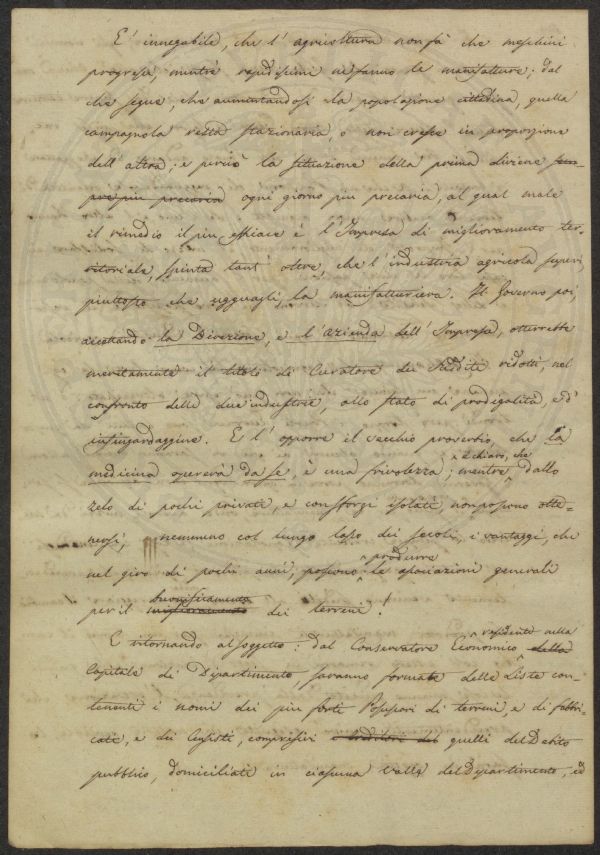 E' innegabile, che l' agricoltura non fà che meschini
progressi, mentre rapidissimi ne fanno le manifatture; dal
che segue, che aumentandosi la popolazione cittadina, quella
campagnola resta stazionaria, o non cresce in proporzione
dell' altra; e perciò la situazione della prima diviene sem-
pre più precaria ogni giorno più precaria, al qual male
il rimedio il più efficace è l'Impresa di miglioramento ter-
ritoriale, spinta tant' oltre, che l'industria agricola superi,
piuttosto che uguagli, la manifatturiera. Il Governo poi,
accettando la Direzione, e l'azienda dell' Impresa, otterrebbe
meritamente il titolo di Curatore dei Redditi ridotti, nel
confronto delle due industrie, allo stato di prodigalità, e d'
infingardaggine. E l' opporre il vecchio proverbio, che la
medicina opererà da se, è una frivolezza; mentre è chiaro, che dallo
zelo di pochi privati, e con sforzi isolati, non possono otte-
nersi, nemmeno col lungo lasso dei secoli, i vantaggi, che
nel giro di pochi anni, possono produrre le associazioni generali
per il miglioramento buonificamento dei terreni!
E ritornando al soggetto: dal Conservatore Economico della residente nella
Capitale di Dipartimento, saranno formate delle Liste con-
tenenti i nomi dei più forti Possessori di terreni, e di fabbri-
cati, e dei Censisti, compresivi e creditori del quelli del Debito
pubblico, domiciliati in ciascuna valle del Dipartimento, ed